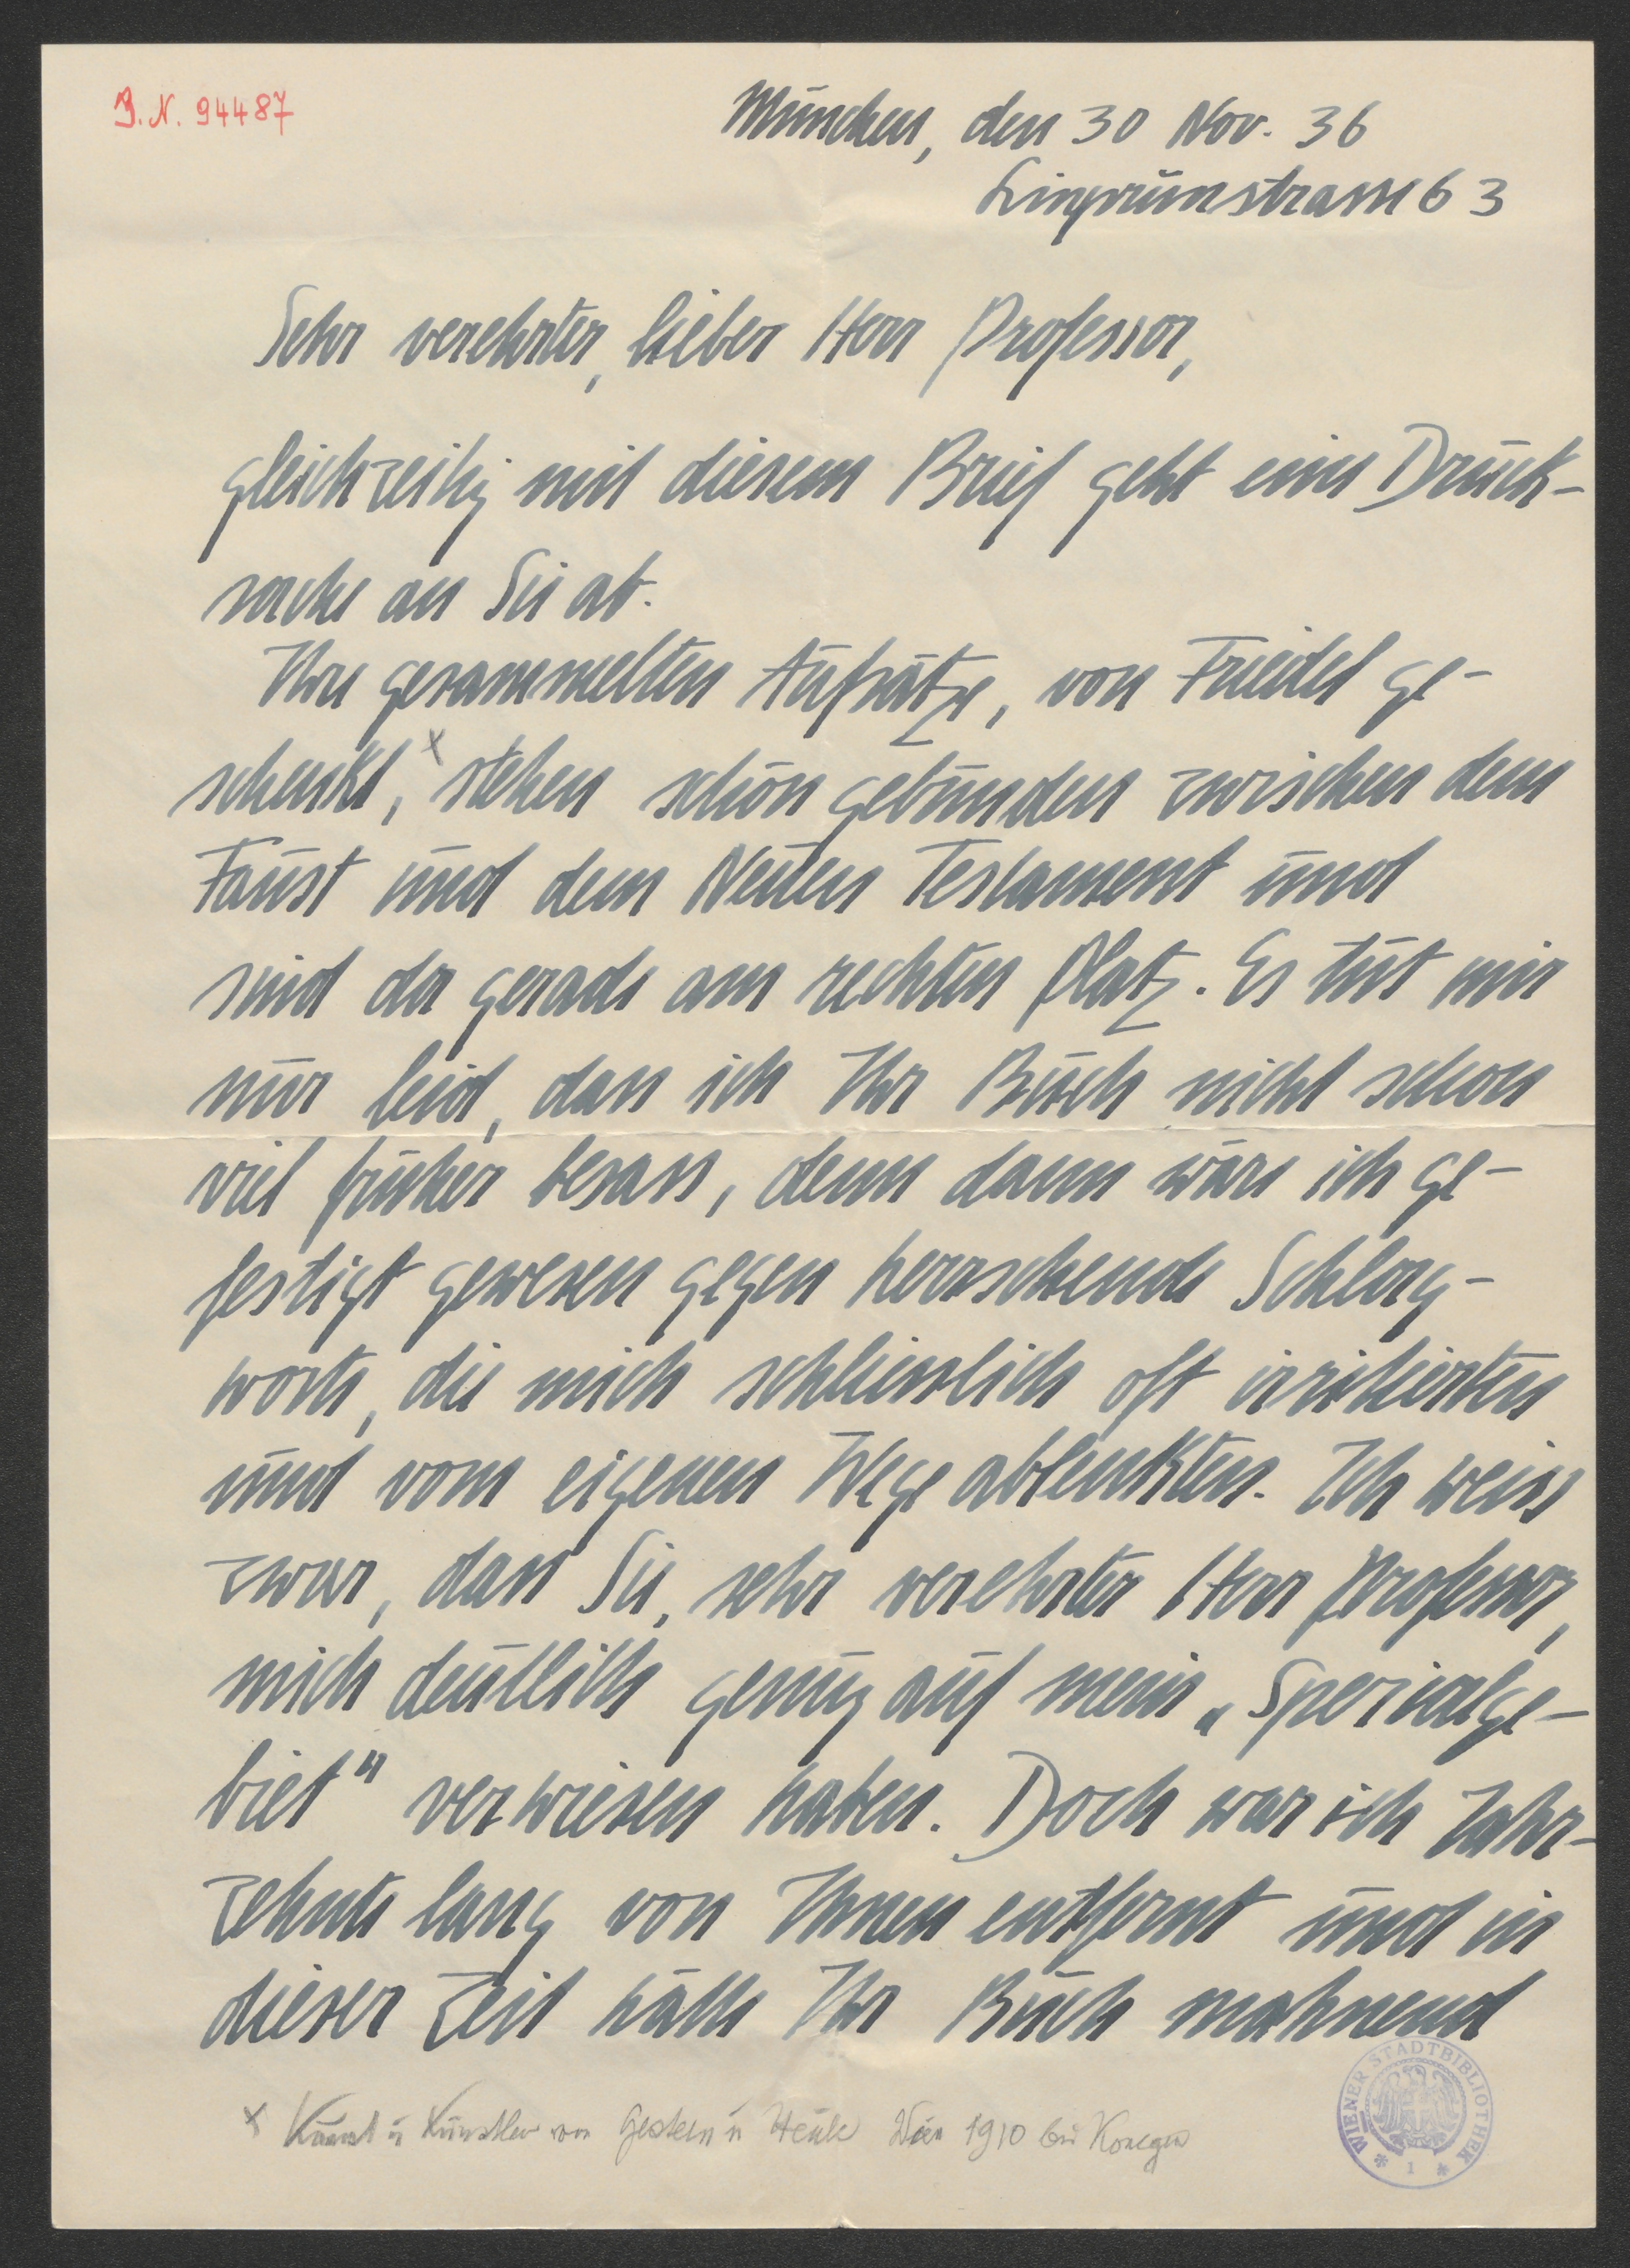 J.N. 94487
München, den 30 Nov. 36
Lingrünstrasse 63
Sehr verehrter, lieber Herr Professor,
gleichzeitig mit diesem Brief geht eine Druck-
sache an Sie ab.
Ihre gesammelten Aufsätze, von Friedel ge-
schenkt,ˣ stehen schön gebunden zwischen dem
Faust und dem Neuen Testament und
sind da gerade am rechten Platz. Es tut mir
nur leid, dass ich Ihr Buch nicht schon
viel früher besass, denn dann wäre ich ge-
festigt gewesen gegen herrschende Schlag-
worte, die mich schliesslich oft irritierten
und vom eigenen Wege ablenkten. Ich weiss
zwar, dass Sie, sehr verehrter Herr Professor,
mich deutlich genug auf mein „Spezialge-
biet" verwiesen haben. Doch war ich Jahr-
zehnte lang von Ihnen entfernt und in
dieser Zeit hätte Ihr Buch mahnend
x Kunst u Künstler von Gestern u Heute Wien 1910 bei Konegen
WIENER STADTBIBLIOTHEK
* 1 *